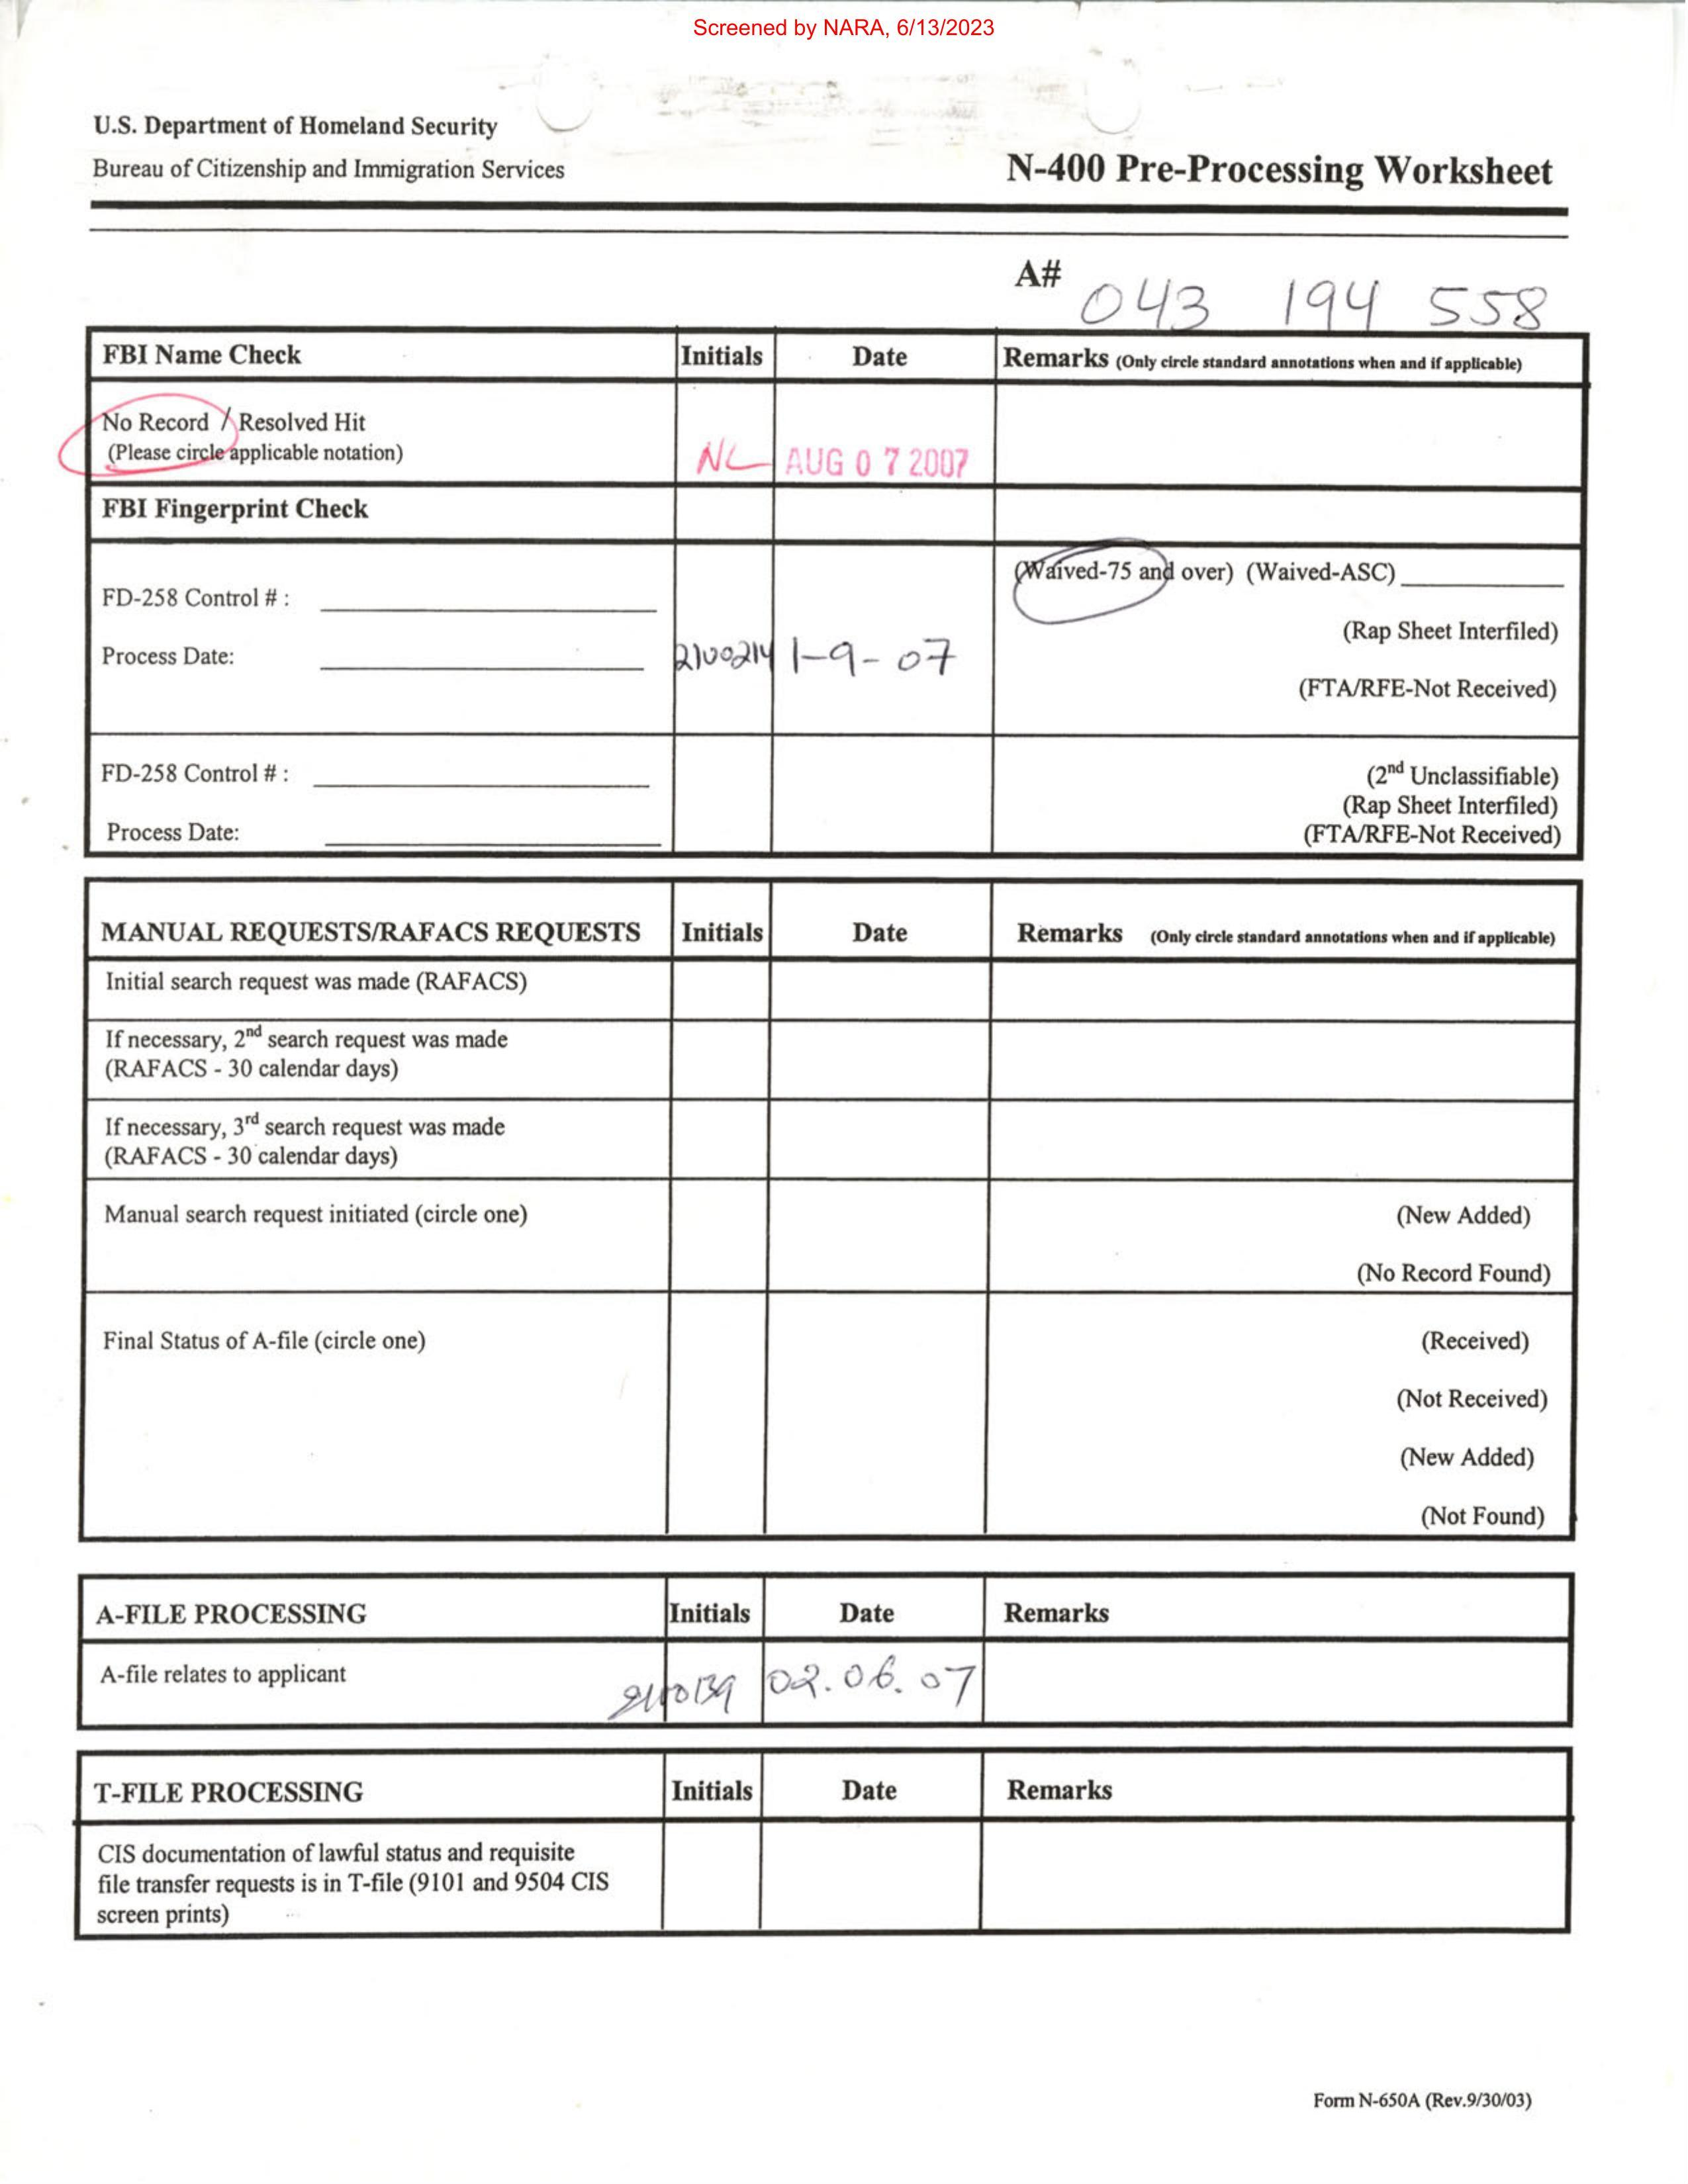 Screened by NARA, 6/13/2023
U.S. Department of Homeland Security
Bureau of Citizenship and Immigration Services
N-400 Pre-Processing Worksheet
A# 043 194 558
FBI Name Check Initials Date Remarks (Only circle standard annotations when and if applicable)
No Record / Resolved Hit
(Please circle applicable notation)
NL AUG 07 2007
FBI Fingerprint Check
(Waived-75 and over) (Waived-ASC)
FD-258 Control # :
(Rap Sheet Interfiled)
Process Date: 2100214 1-9-07
(FTA/RFE-Not Received)
FD-258 Control # :
(2nd Unclassifiable)
(Rap Sheet Interfiled)
Process Date:
(FTA/RFE-Not Received)
MANUAL REQUESTS/RAFACS REQUESTS Initials Date Remarks (Only circle standard annotations when and if applicable)
Initial search request was made (RAFACS)
If necessary, 2nd search request was made
(RAFACS - 30 calendar days)
If necessary, 3rd search request was made
(RAFACS - 30 calendar days)
Manual search request initiated (circle one) (New Added)
(No Record Found)
Final Status of A-file (circle one) (Received)
(Not Received)
(New Added)
(Not Found)
A-FILE PROCESSING Initials Date Remarks
A-file relates to applicant 02.06.07
T-FILE PROCESSING Initials Date Remarks
CIS documentation of lawful status and requisite
file transfer requests is in T-file (9101 and 9504 CIS
screen prints)
Form N-650A (Rev.9/30/03)